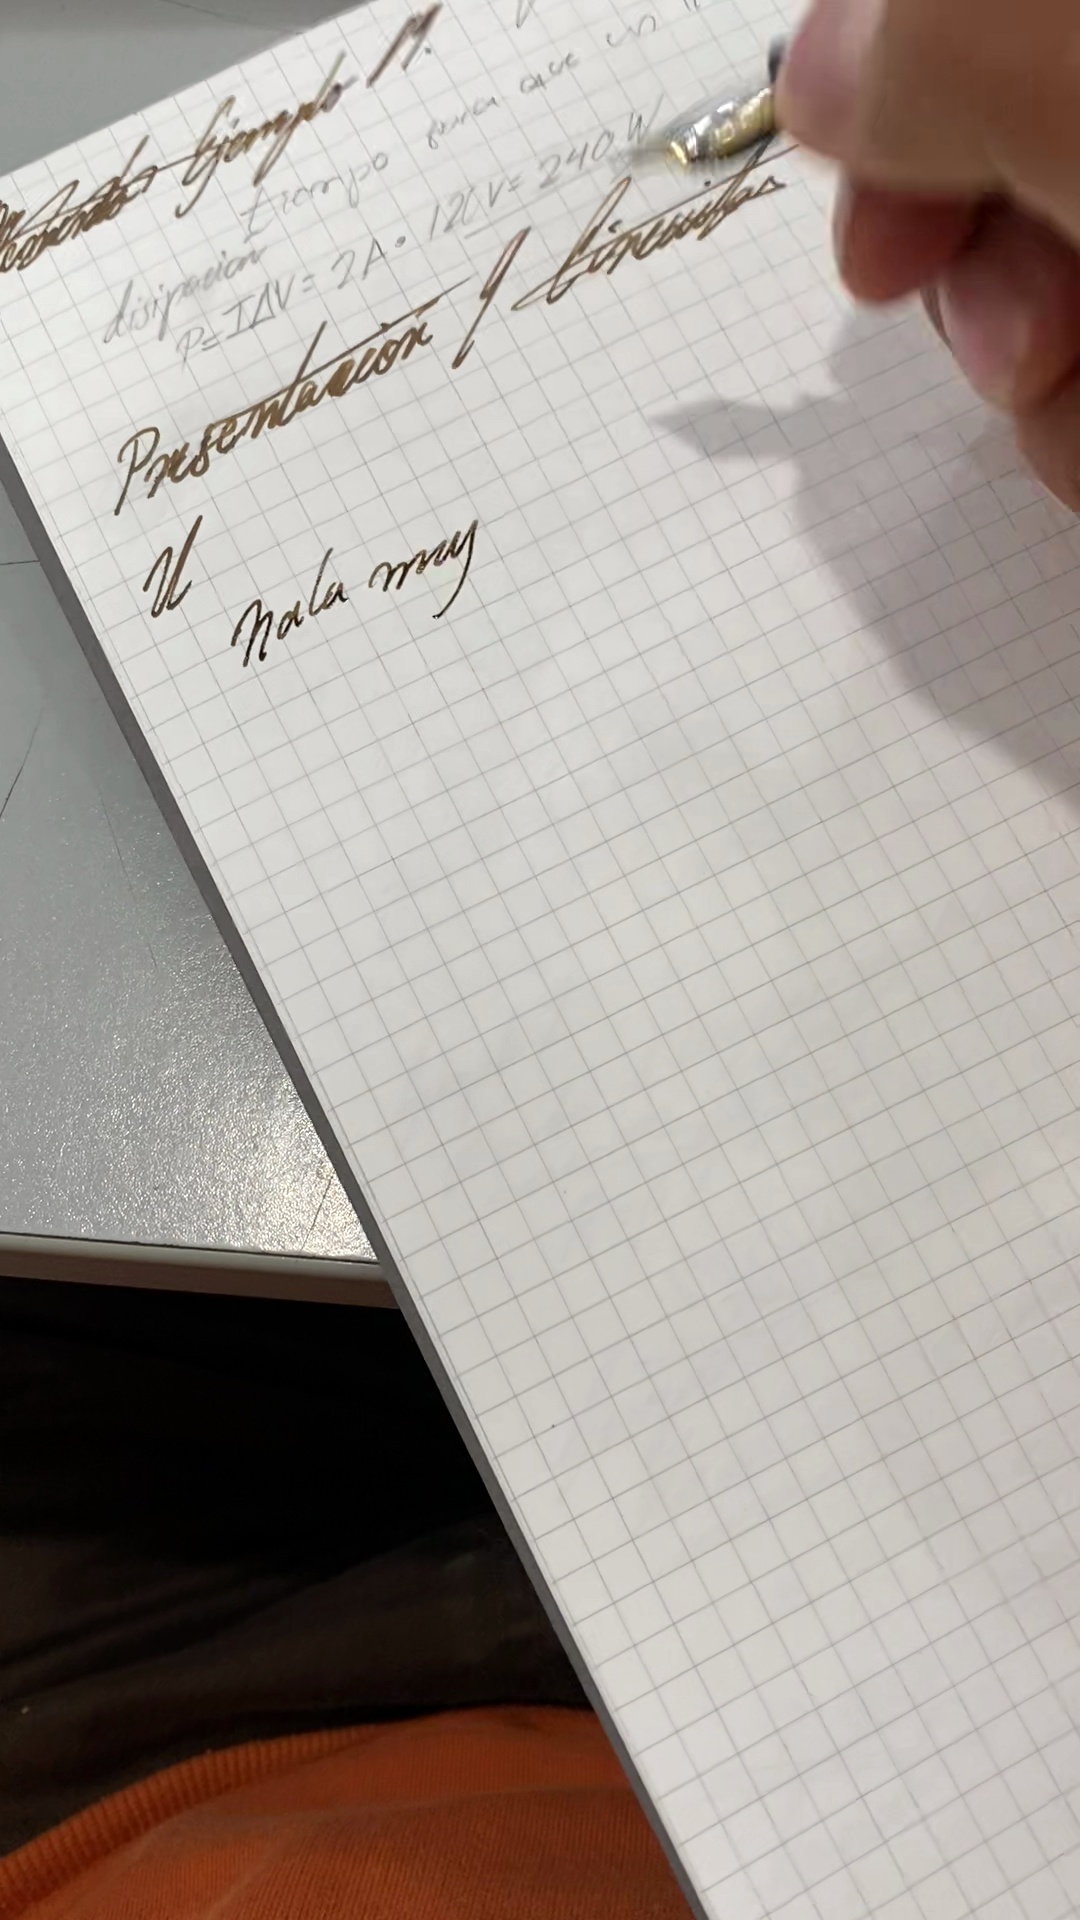 Ejemplo M.
tiempo para que un
disipacion
P=IΔV= 2A • 120V= 240 W
Presentación y Circuitos
U
nala muy